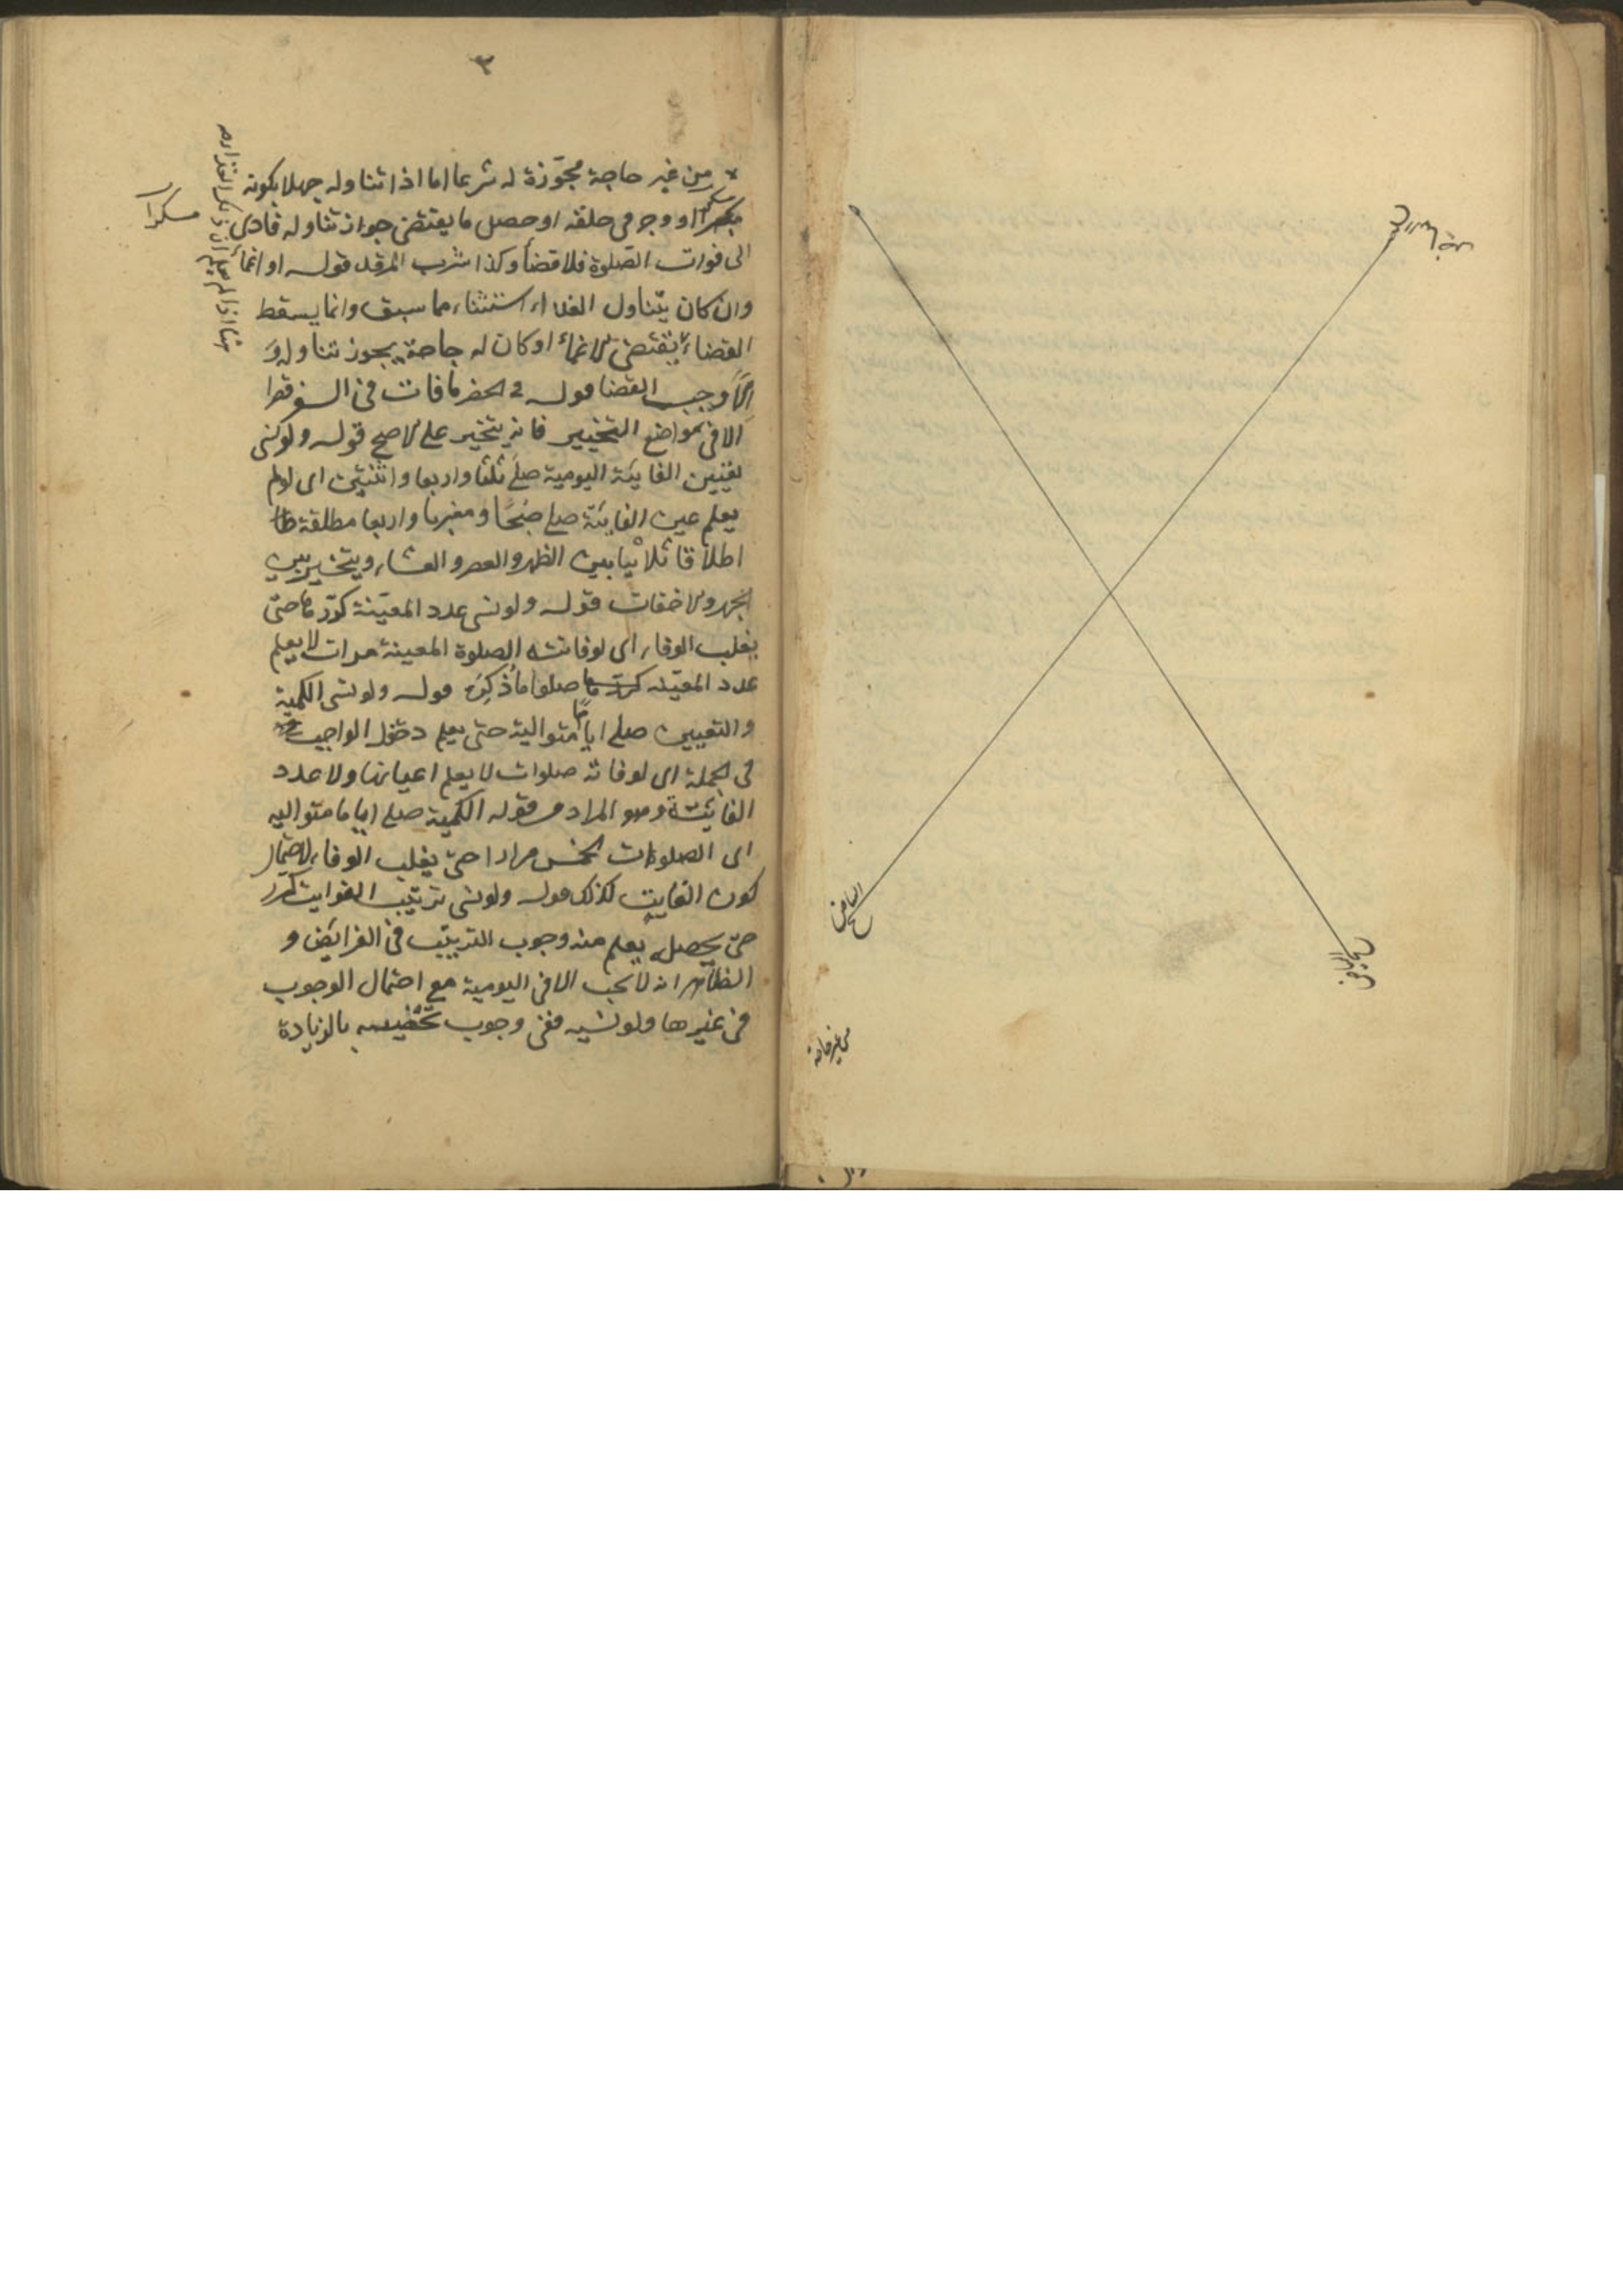 من غير حاجة مجوّزة له شرعا اما اذا تناوله جهلا بكونه
مسكرا او وجر فى حلقه او حصل ما يقتضى جواز تناوله فادى
الى فوات الصلوة فلا قضاء وكذا شرب المرقد قوله او اغماء
وان كان بتناول الغذاء استثناء مما سبق وانما يسقط
القضاء يقتضى الاغماء او كان له حاجة يجوز تناوله و
الا وجب القضا قوله فى الحضر ما فات فى السفر قصرا
الا فى مواضع التخيير فانه يتخير على الاصح قوله ولو نسى
تعيين الفايتة اليومية صلى ثلثا واربعا واثنتين اى لو لم
يعلم عين الفائتة صلى صبحًا ومغربا واربعا مطلقة
اطلاقا ثلاثيا بين الظهر والعصر والعشاء ويتخير بين
الجهر والاخفات قوله ولو نسى عدد المعيّنة كرّرها حتى
يغلب الوفاء اى لو فاتته الصلوة المعينة مرات لا يعلم
عدد المعيّنه صلوا ما ذكره قوله ولو نسى الكمية
والتعيين صلى اياما متوالية حتى يعلم دخول الواجب
فى الجملة اى لو فاته صلوات لا يعلم اعيانها ولا عدد
الفائتة وهو المراد من قوله الكمية صلى اياما متواليه
اى الصلوات الخمس مرارا حتى يغلب الوفاء لاحتمال
كون الفايت كذلك قوله ولو نسى ترتيب الفوايت كرر
حتى يحصله يعلم منه وجوب الترتيب فى الفرائض و
الظاهر انه لا يجب الا فى اليومية مع احتمال الوجوب
فى غيرها ولو نسيه ففى وجوب تحصيله بالزيادة
مسكرا
البياض
صحيح
من غير حاجة